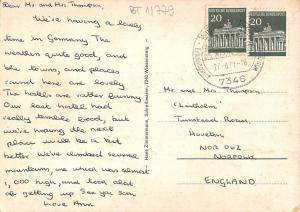 Dear Mr. and Mrs. Thompson,
We're having a lovely
time in Germany. The
weather's quite good, and
the towns, and places
round here are lovely.
The hotels are rather funny
Our last hotel had
really terrible food, but
we're hoping the next
place will be a bit
better. We've climbed several
mountains, one which was several
,000 high, and took about
of getting up. See you soon
Love Ann
Hans Zimmermann, Schreibwaren, 7346 Wiesensteig
20
DEUTSCHE BUNDESPOST
20
DEUTSCHE BUNDESPOST
7346
Mr. and Mrs. Thompson,
Tunstead Road,
Hoveton
NOR 06Z
NORFOLK
ENGLAND